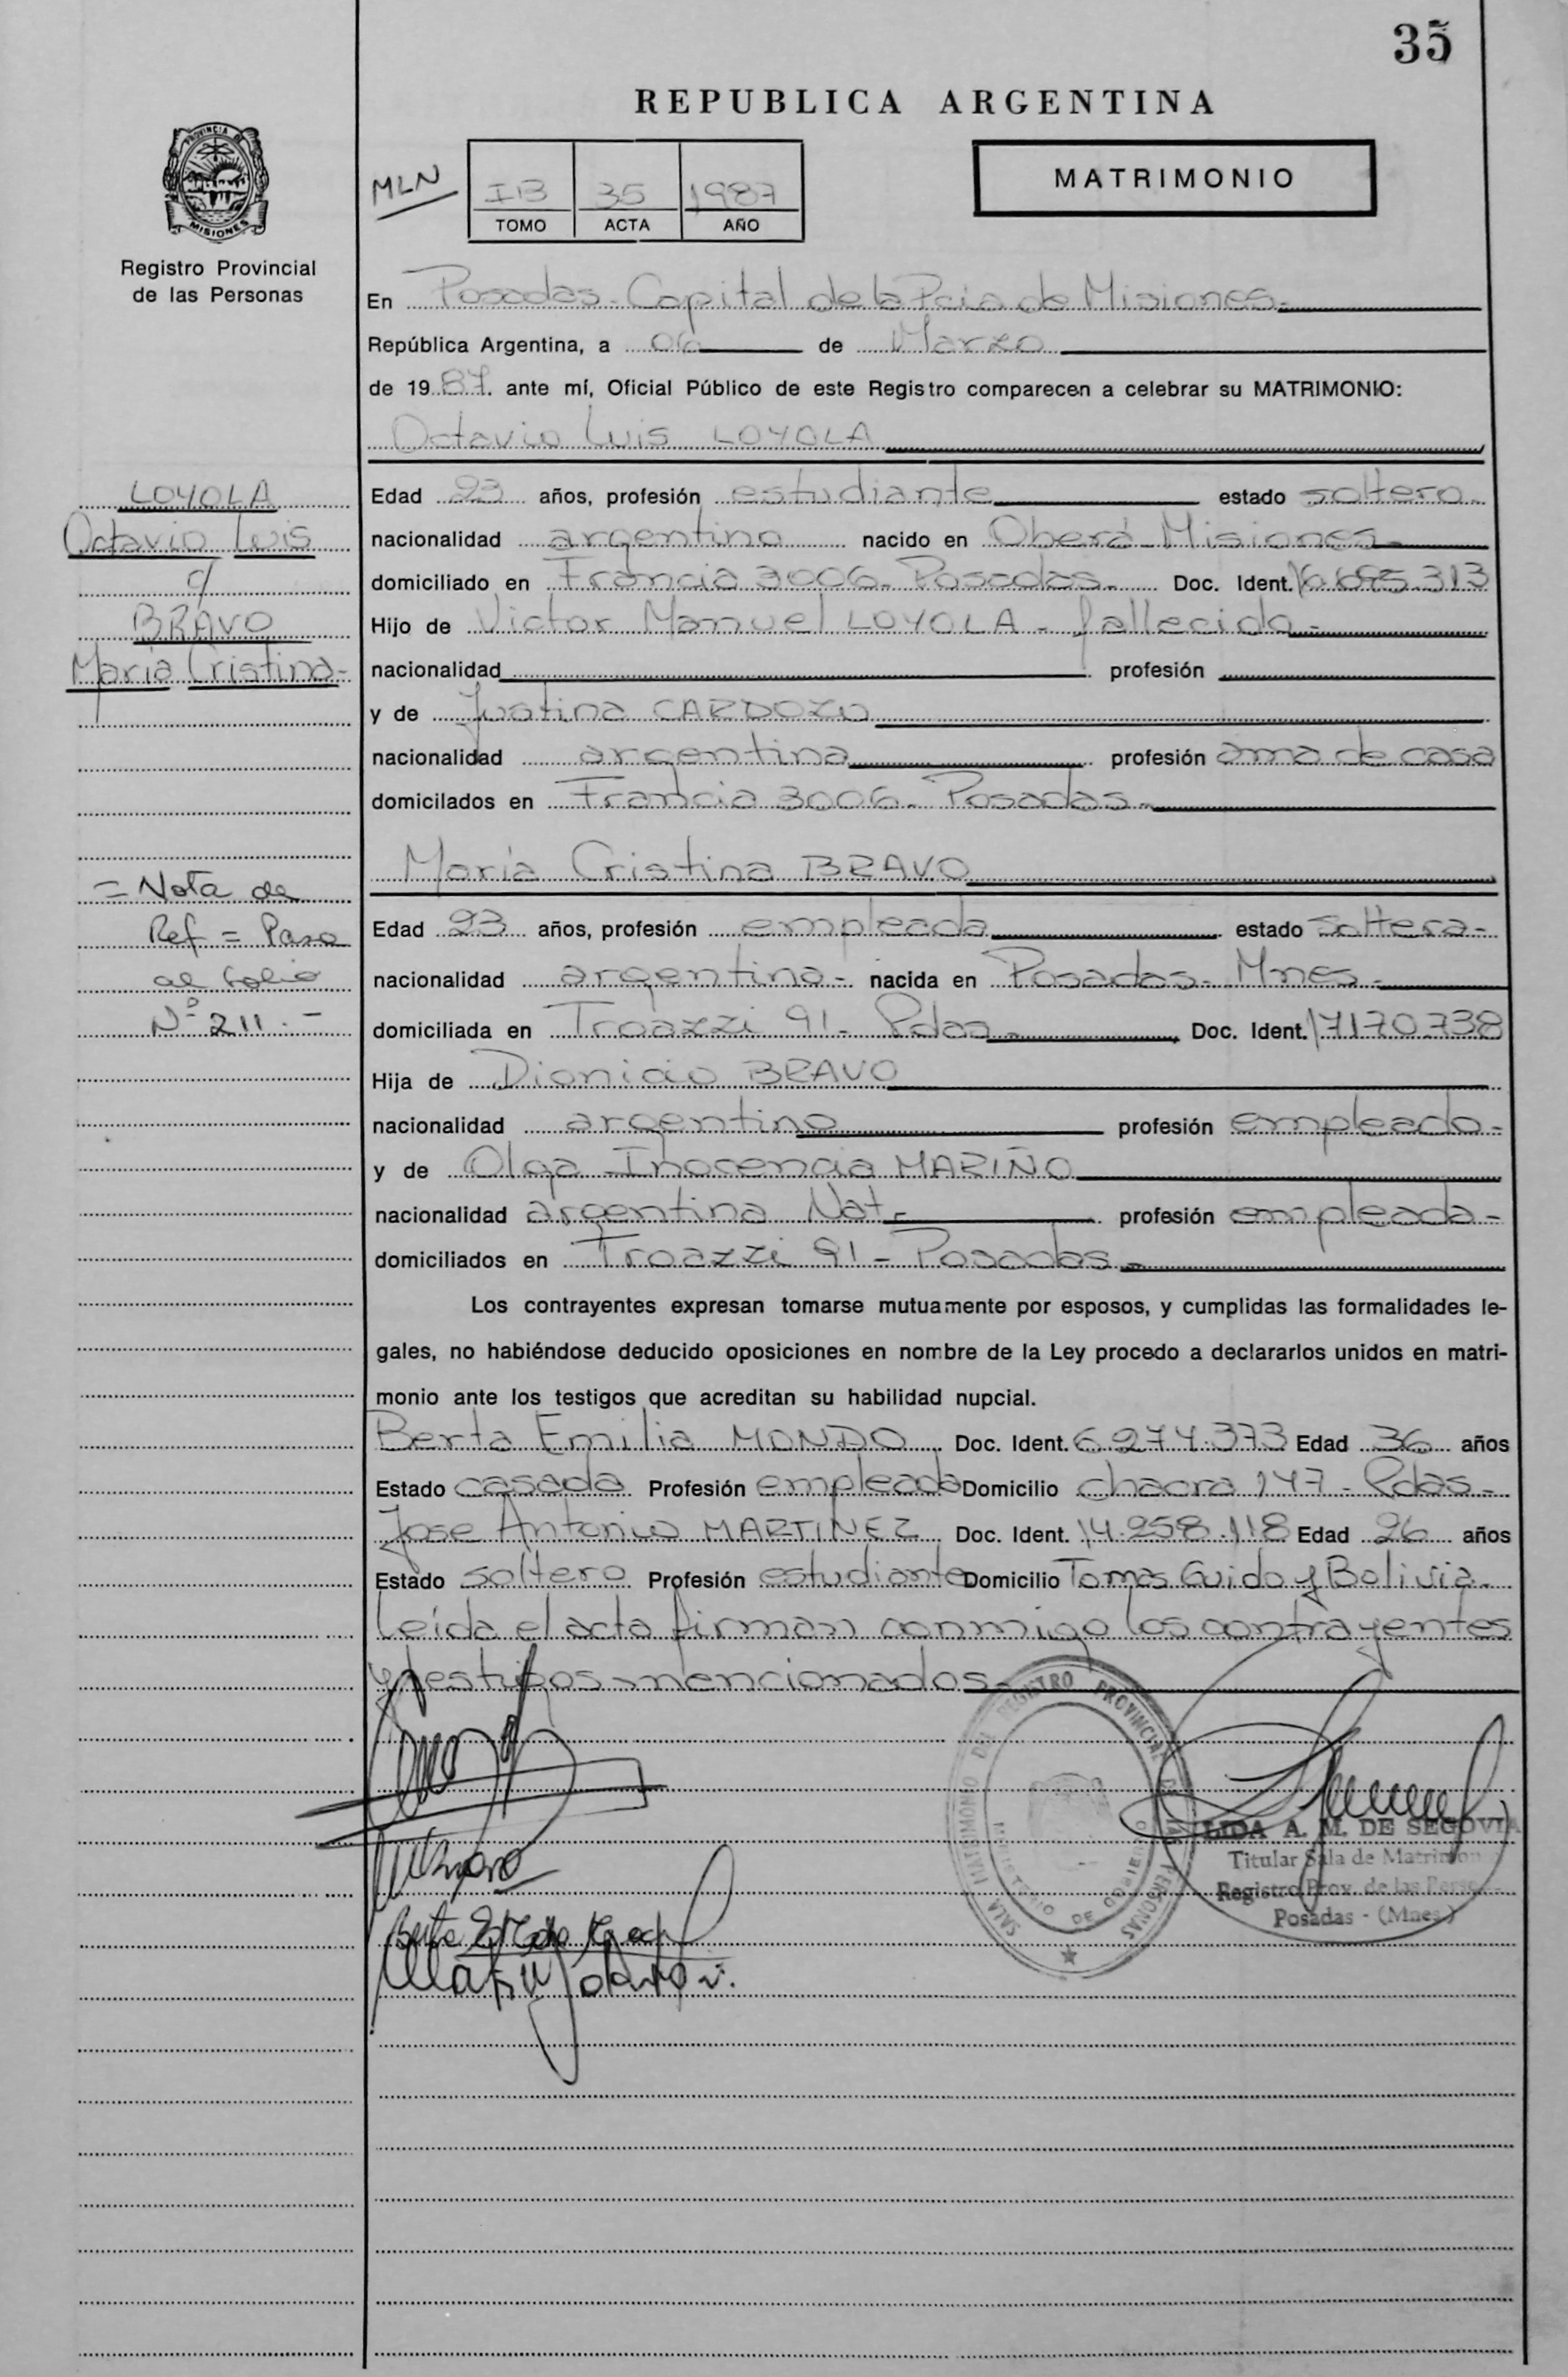 35
REPUBLICA ARGENTINA
PROVINCIA DE
MISIONES
Registro Provincial
de las Personas
MLN
IB 35 1987
TOMO ACTA AÑO
MATRIMONIO
En Posadas - Capital de la Pcia de Misiones.-
República Argentina, a 06 de Marzo
de 1987. ante mí, Oficial Público de este Registro comparecen a celebrar su MATRIMONIO:
Octavio Luis LOYOLA
LOYOLA
Octavio Luis
c/
BRAVO
María Cristina-
Edad 23 años, profesión estudiante estado soltero-
nacionalidad argentino nacido en Oberá - Misiones-
domiciliado en Francia 3006- Posadas- Doc. Ident. 16.695.313
Hijo de Victor Manuel LOYOLA - fallecido-
nacionalidad profesión
y de Justina CARDOZO
nacionalidad argentina profesión ama de casa
domicilados en Francia 3006- Posadas-
María Cristina BRAVO
= Nota de
Ref = Pasa
al folio
Nº 211.-
Edad 23 años, profesión empleada estado soltera-
nacionalidad argentina- nacida en Posadas- Mnes-
domiciliada en Troazzi 91- Pdas- Doc. Ident. 17.170.738
Hija de Dionicio BRAVO
nacionalidad argentino profesión empleado-
y de Olga Inocencia MARIÑO
nacionalidad argentina Nat- profesión empleada-
domiciliados en Troazzi 91 - Posadas-
Los contrayentes expresan tomarse mutuamente por esposos, y cumplidas las formalidades le-
gales, no habiéndose deducido oposiciones en nombre de la Ley procedo a declararlos unidos en matri-
monio ante los testigos que acreditan su habilidad nupcial.
Berta Emilia MONDO Doc. Ident. 6.274.373 Edad 36 años
Estado casada Profesión empleada Domicilio chacra 147 - Pdas-
Jose Antonio MARTINEZ Doc. Ident. 14.258.118 Edad 26 años
Estado soltero Profesión estudiante Domicilio Tomas Guido y Bolivia-
Leída el acta firman conmigo los contrayentes
y testigos mencionados-
SALA MATRIMONIO DEL REGISTRO PROVINCIAL DE LAS PERSONAS
MINISTERIO DE GOBIERNO
LIDA A. M. DE SEGOVIA
Titular Sala de Matrimon
Registro Prov. de las Person
Posadas - (Mnes.)